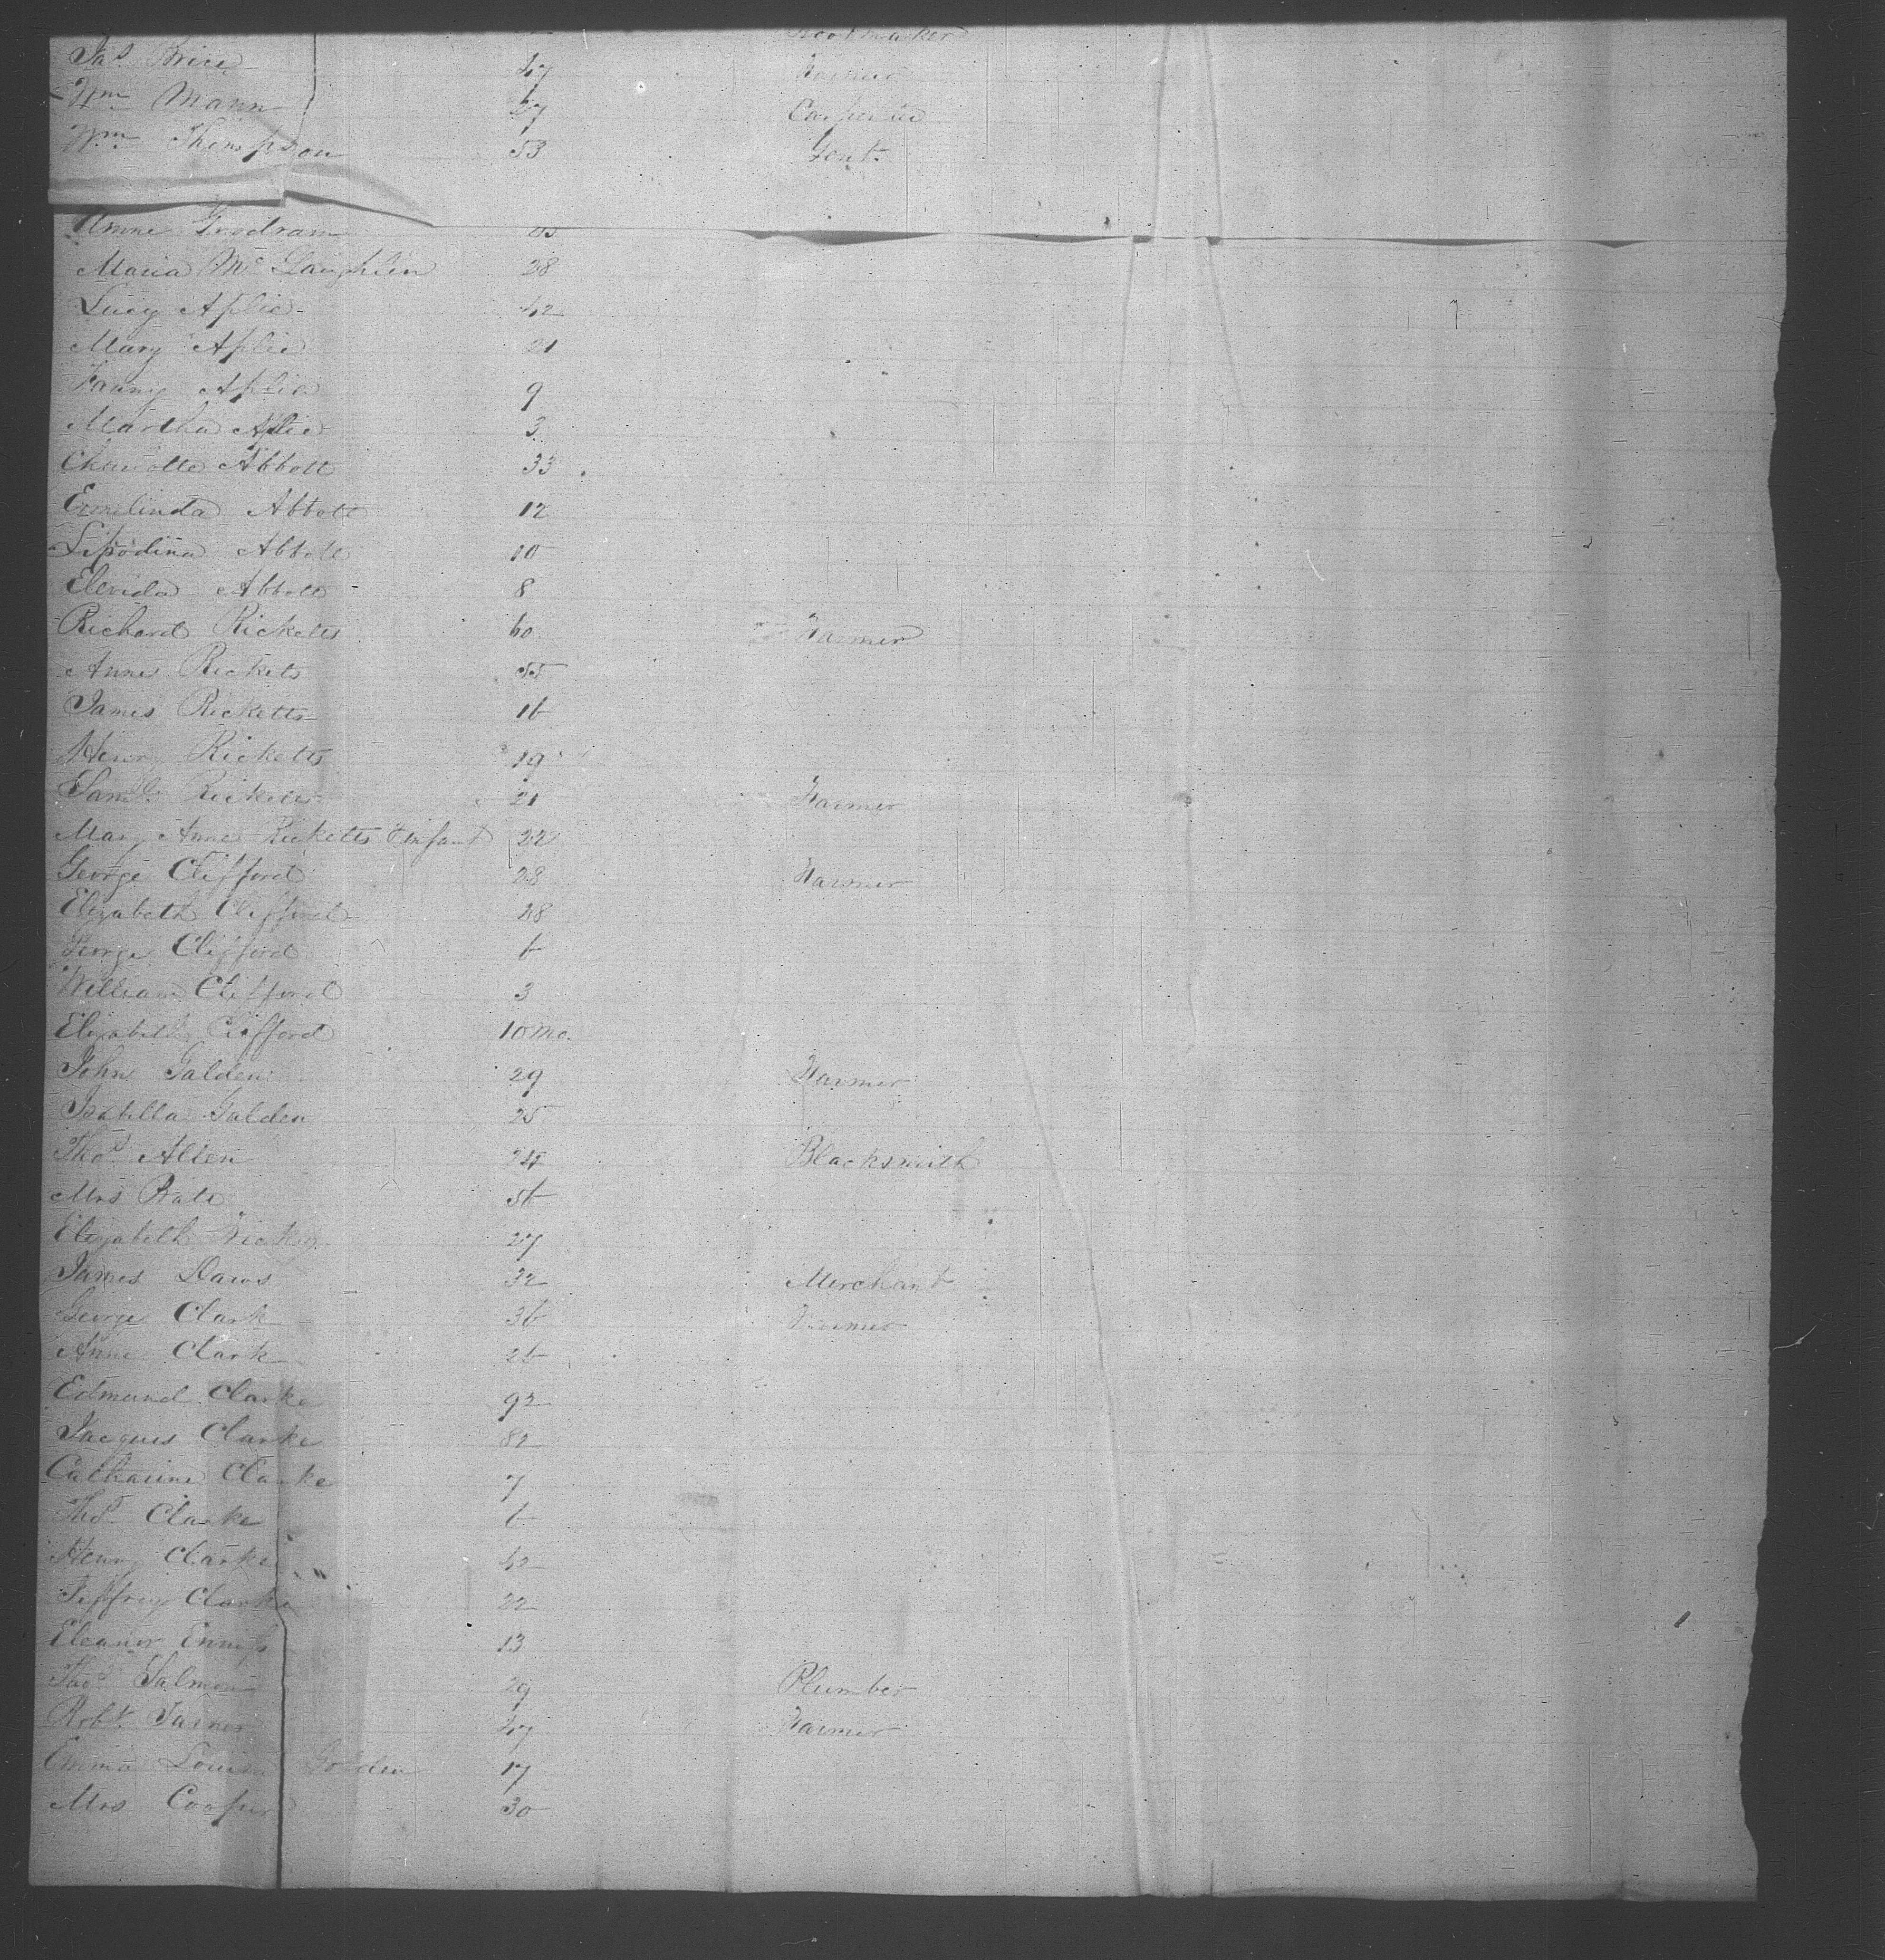 Bootmaker
Jas. Price 47 Farmer
Wm. Mann 27 Carpenter
Wm. Thompson 53 Gent.
Anne Goodram
Maria McLaughlin 28
Lucy Aplie 42
Mary Aplie 21
Fanny Aplie 9
Martha Aplie 3
Charlotte Abbott 33
Ermelinda Abbott 12
Abbott 10
Elerida Abbott 8
Richard Ricketts 60 Farmer
Anne Rickets 55
James Ricketts 16
Henry Ricketts 19
Saml. Ricketts 21 Farmer
Mary Anne Ricketts & infant 22
George Clifford 28 Farmer
Elizabeth Clifford 28
George Clifford 6
William Clifford 3
Elizabeth Clifford 10 mo.
John Galden 29 Farmer
Isabella Galden 25
Thos. Allen 24 Blacksmith
Mrs Bate 56
Elizabeth 27
James Daws 32 Merchant
George Clark 36 Farmer
Anne Clark 26
Edmund Clarke 9½
Jacques Clarke 8½
Catharine Clarke 7
Thos. Clarke 6
Henry Clarke 4½
Jeffrey Clarke 2½
Eleanor Ennis 13
Thos. Salmon 29 Plumber
Robt. 47 Farmer
Emma Louisa Golden 17
Mrs Cooper 30